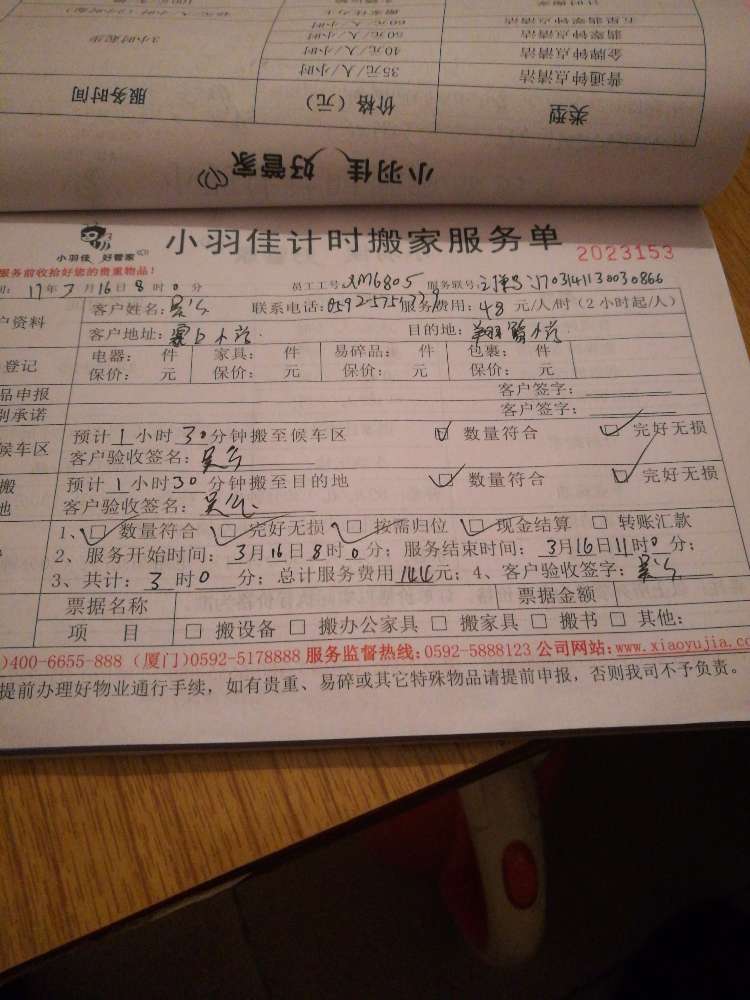 计时搬家
五星翡翠钟点清洁 60元/人/小时
翡翠钟点清洁 50元/人/小时
金牌钟点清洁 40元/人/小时
普通钟点清洁 35元/人/小时 3小时起步
类型 价格（元） 服务时间
小羽佳 好管家
小羽佳 好管家
小羽佳计时搬家服务单 2023153
服务前收拾好您的贵重物品！
17年3月16日8时0分 员工工号 XM6805 服务联号
户资料 客户姓名： 联系电话： 服务费用：48元/人/时（2小时起/人）
客户地址： 目的地：
登记 电器： 件 家具： 件 易碎品： 件 包裹： 件
保价： 元 保价： 元 保价： 元 保价： 元
品申报 客户签字：
别承诺 客户签字：
候车区 预计1小时30分钟搬至候车区 数量符合 完好无损
客户验收签名：
搬 预计1小时30分钟搬至目的地 数量符合 完好无损
地 客户验收签名：
1、数量符合 完好无损 按需归位 现金结算 转账汇款
2、服务开始时间：3月16日8时0分；服务结束时间：3月16日11时0分；
3、共计：3时0分；总计服务费用144元；4、客户验收签字：
票据名称 票据金额
项 目 搬设备 搬办公家具 搬家具 搬书 其他：
)400-6655-888（厦门)0592-5178888 服务监督热线：0592-5888123 公司网站：www.xiaoyujia.co
提前办理好物业通行手续，如有贵重、易碎或其它特殊物品请提前申报，否则我司不予负责。